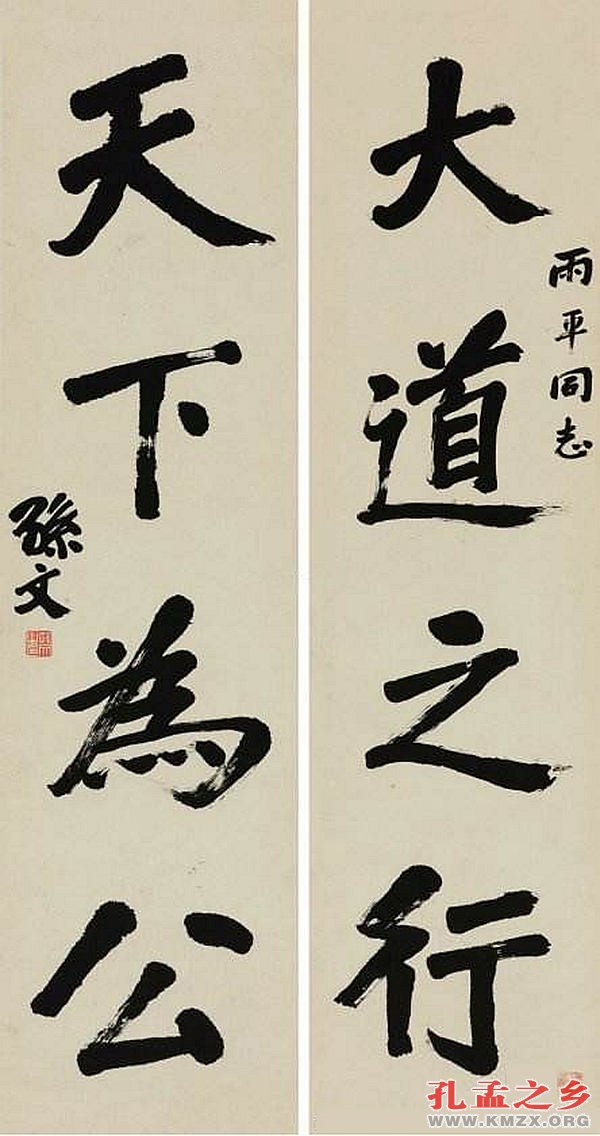 雨平同志
大道之行
天下為公
孫文
孔孟之乡
WWW.KMZX.ORG